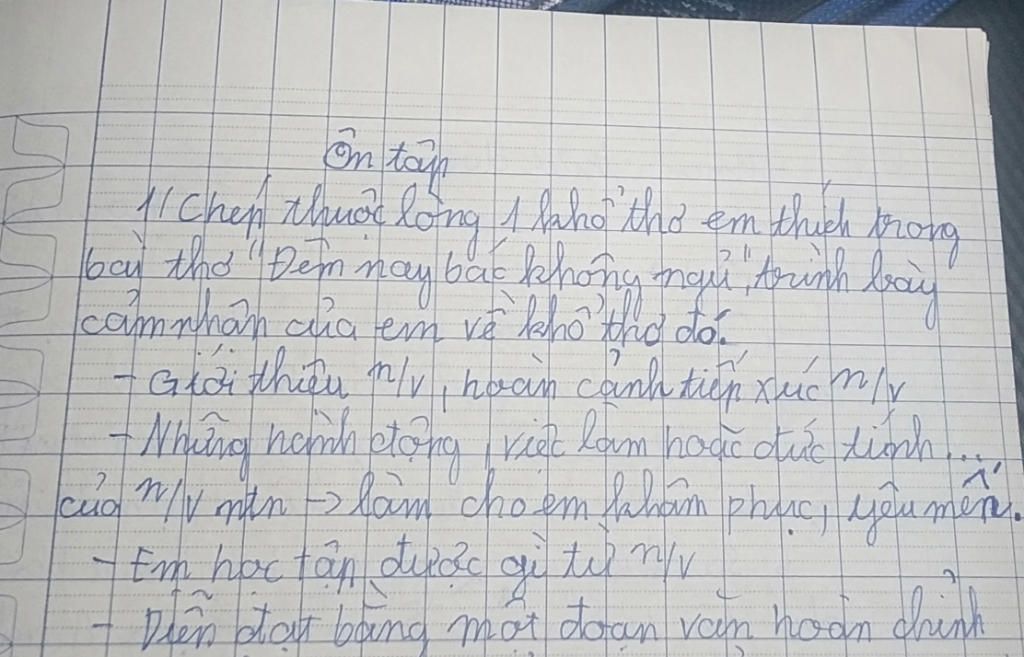 Ôn tập
1/ Chép thuộc lòng 1 khổ thơ em thích trong
bài thơ "Đêm nay bác không ngủ", trình bày
cảm nhận của em về khổ thơ đó.
- Giới thiệu n/v, hoàn cảnh tiếp xúc n/v
- Những hành động, việc làm hoặc đức tính...
của n/v ntn -> làm cho em khâm phục, yêu mến.
- Em học tập được gì từ n/v
- Diễn đạt bằng một đoạn văn hoàn chỉnh